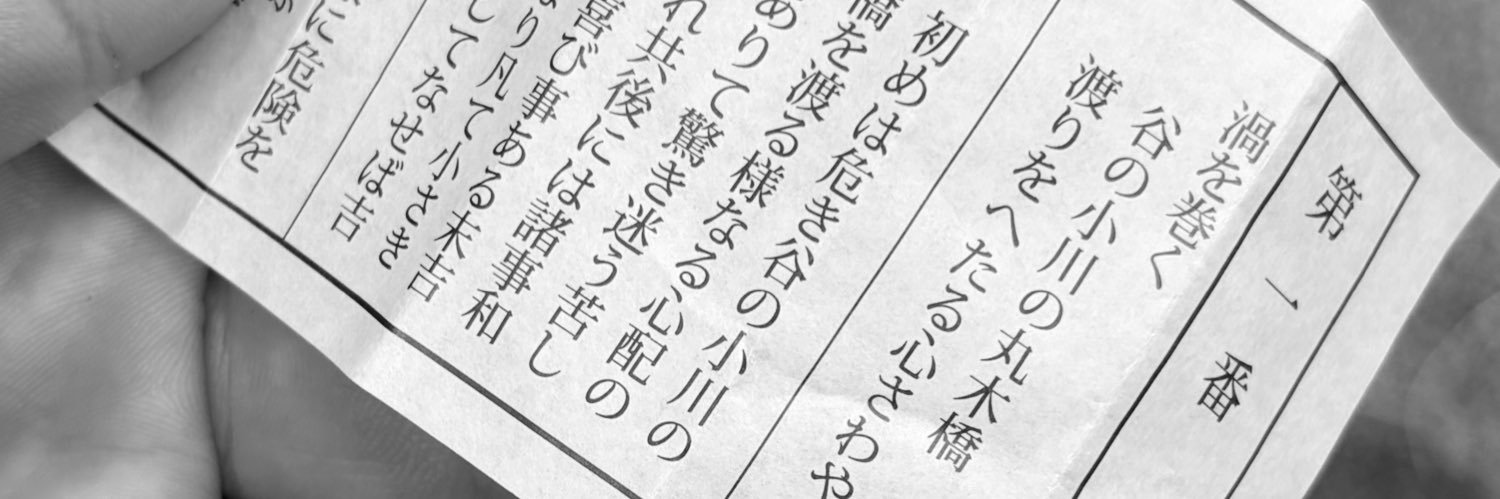 第一番
渦を巻く
谷の小川の丸木橋
渡りをへたる心さわや
初めは危き谷の小川の
橋を渡る様なる心配の
ありて驚き迷う苦し
れ共後には諸事和
喜び事ある末吉
なり凡て小さき
してなせば吉
に危険を